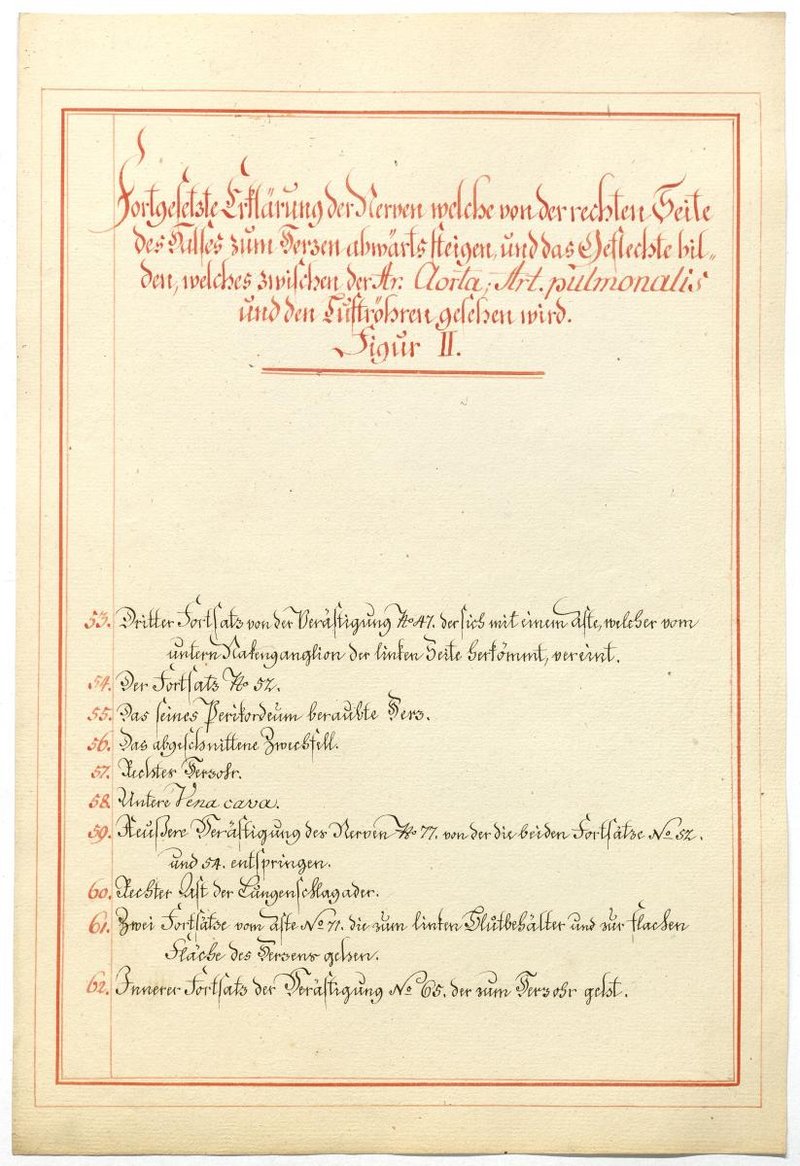 Fortgesetzte Erklärung der Nerven welche von der rechten Seite
des Halses zum Herzen abwärts steigen, und das Geflechte bil„
den, welches zwischen der Ar: Aorta; Art. pulmonalis
und den Luftröhren gesehen wird.
Figur II.
53. Dritter Fortsatz von der Verästigung No 47. der sich mit einem Aste, welcher vom
untern Nakenganglion der linken Seite herkömmt, vereint.
54. Der Fortsatz No 52.
55. Das seines Perikordeum beraubte Herz.
56. Das abgeschnittene Zwechfell.
57. Rechtes Herzohr.
58. Untere Vena cava.
59. Aeußere Verästigung des Nerven No 77. von der die beiden Fortsätze No 52.
und 54. entspringen.
60. Rechter Ast der Lungenschlagader.
61. Zwei Fortsätze vom Aste No 71. die zum linken Blutbehälter und zur flachen
Fläche des Herzens gehen.
62. Innerer Fortsatz der Verästigung No 65. der zum Herzohr geht.